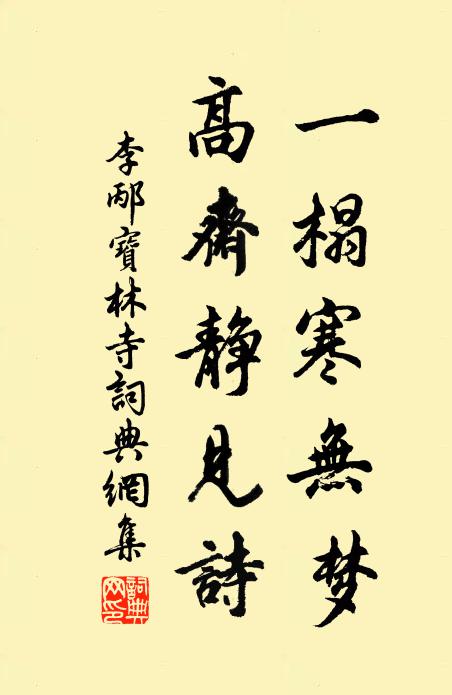 一榻寒無梦
高齋靜見詩
李邴寶林寺詞典網集
詞典网印